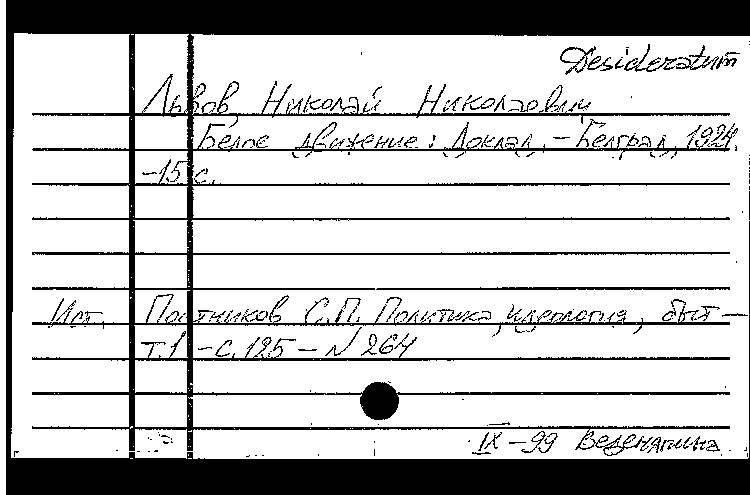 Desideratum
Львов, Николай Николаевич
Белое движение: Доклад. – Белград, 1924.
–15 с.
Ист. Постников С.П. Политика, идеология, быт –
т.1 – с. 125 – N 264
IX – 99 Веденяпина